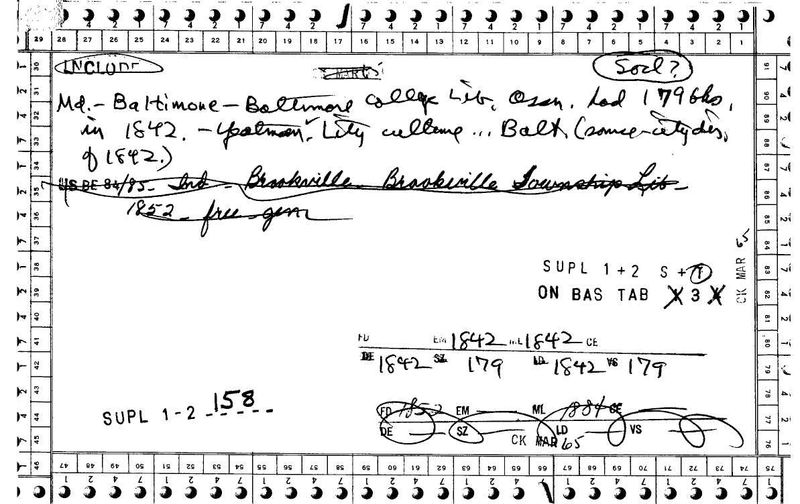 29 28 27 26 25 24 23 22 21 20 19 18 17 16 15 14 13 12 11 10 9 8 7 6 5 4 3 2 1
INCLUDE
Socl?
Md. - Baltimore - Baltimore College Lib. Assn. had 179 bks.
in 1842. - Yeatman. Lity culture ... Balt. (some city dirs.
of 1842.)
US BE 84/85 - Ind - Brookville - Brookville Township Lib -
1852 - free - gen
SUPL 1 + 2 S + T
ON BAS TAB X 3 X
CK MAR 65
FD EM 1842 ML 1842 CE
DE 1842 SZ 179 LD 1842 VS 179
SUPL 1 - 2 158
FD 1852 EM ML 1884 CE
DE SZ LD VS
CK MAR 65
30 31 32 33 34 35 36 37 38 39 40 41 42 43 44 45 46
91 90 89 88 87 86 85 84 83 82 81 80 79 78 77 76
47 48 49 50 51 52 53 54 55 56 57 58 59 60 61 62 63 64 65 66 67 68 69 70 71 72 73 74 75